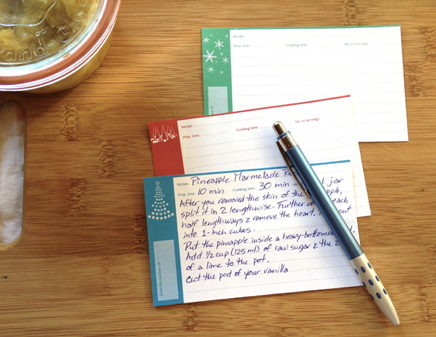 Recipe:
Prep. time: Cooking time: No. of servings:
Recipe:
Prep. time: Cooking time: No. of servings:
Recipe: Pineapple Marmelade
Prep. time: 10 min Cooking time: 30 min jar
After you removed the skin of the
split it in 2 lengthwise. Further each
half lengthways & remove the heart, cut
into 1-inch cubes.
Put the pineapple inside a heavy-bottomed
Add ½ cup (125 ml) of raw sugar & the
of a lime to the pot.
Cut the pod of your vanilla
From the kitchen of